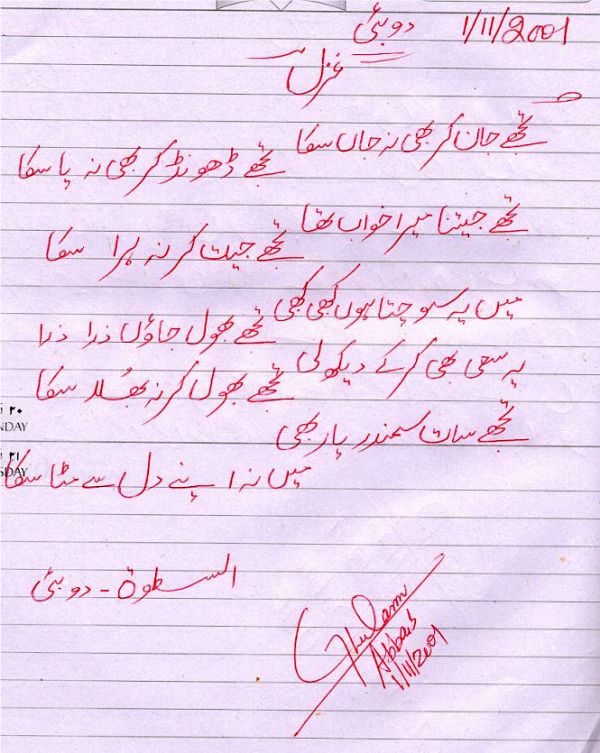 دوبئی 1/11/2001
غزل
تجھے جان کر بھی نہ جاں سکا
تجھے ڈھونڈ کر بھی نہ پا سکا
تجھے جیتنا میرا خواب تھا
تجھے جیت کر نہ ہرا سکا
میں یہ سوچتا ہوں کبھی کبھی
تجھے بھول جاؤں ذرا ذرا
یہ سعی بھی کر کے دیکھ لی
تجھے بھول کر نہ بھُلا سکا
تجھے سات سمندر پار بھی
میں نہ اپنے دل سے مٹا سکا
٢٠
NDAY
٢١
SDAY
السطوة - دوبئی
Ghulam
Abbas
1/11/2001